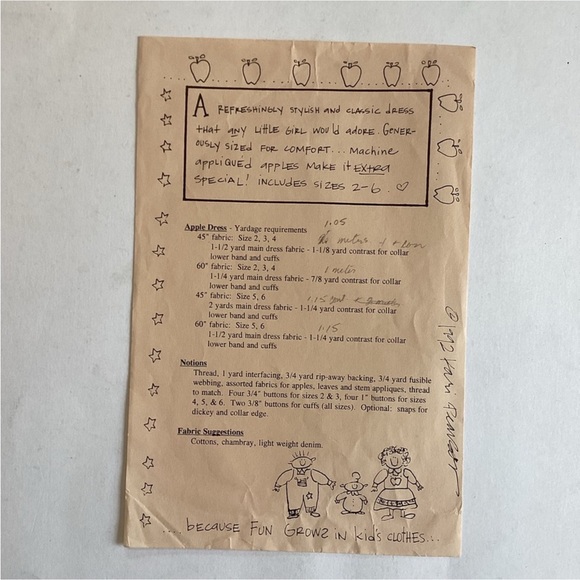 A REFRESHINGLY STYLISH AND CLASSIC DRESS
THAT ANY LITTLE GIRL WOULD ADORE. GENER-
OUSLY SIZED FOR COMFORT... MACHINE
APPLIQUED APPLES MAKE IT EXTRA
SPECIAL! INCLUDES SIZES 2-6. ♡
1.05
Apple Dress - Yardage requirements
45" fabric: Size 2, 3, 4 meters
1-1/2 yard main dress fabric - 1-1/8 yard contrast for collar
lower band and cuffs
60" fabric: Size 2, 3, 4 1 meter
1-1/4 yard main dress fabric - 7/8 yard contrast for collar
lower band and cuffs
45" fabric: Size 5, 6 1.15
2 yards main dress fabric - 1-1/4 yard contrast for collar
lower band and cuffs
60" fabric: Size 5, 6 1.15
1-1/2 yard main dress fabric - 1-1/4 yard contrast for collar
lower band and cuffs
Notions
Thread, 1 yard interfacing, 3/4 yard rip-away backing, 3/4 yard fusible
webbing, assorted fabrics for apples, leaves and stem appliques, thread
to match. Four 3/4" buttons for sizes 2 & 3, four 1" buttons for sizes
4, 5, & 6. Two 3/8" buttons for cuffs (all sizes). Optional: snaps for
dickey and collar edge.
Fabric Suggestions
Cottons, chambray, light weight denim.
.... BECAUSE FUN GROWS IN KID'S CLOTHES...